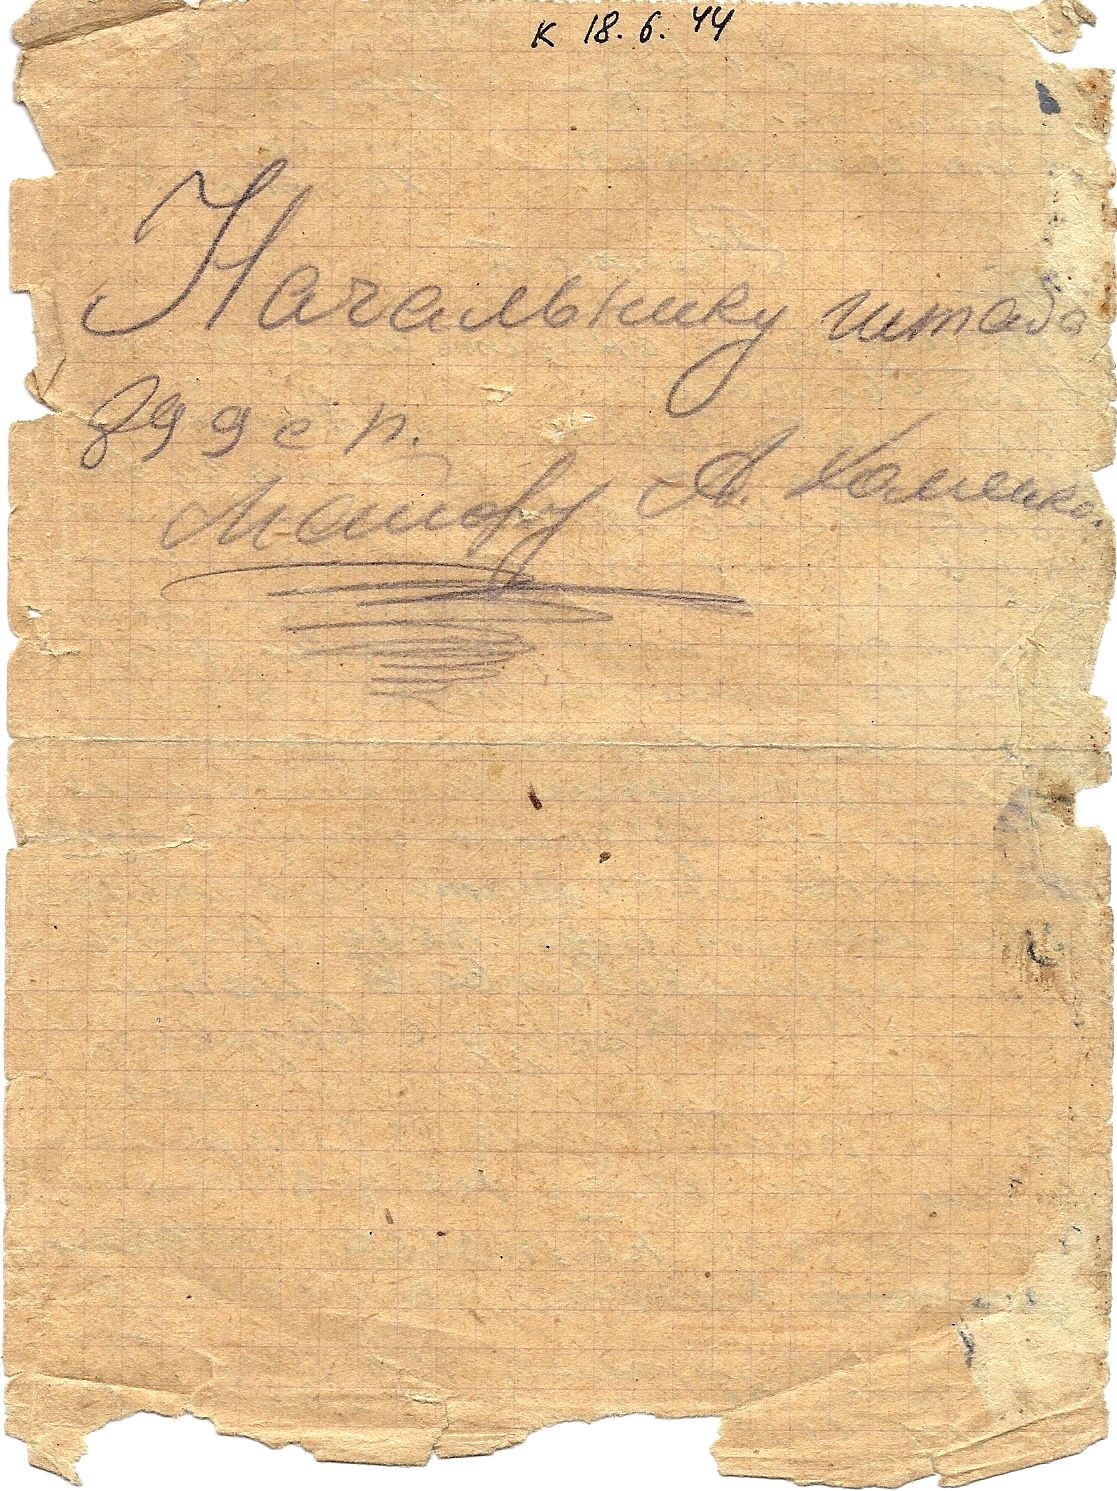 к 18.6.44
Начальнику штаба
899 с п.
Майору А.